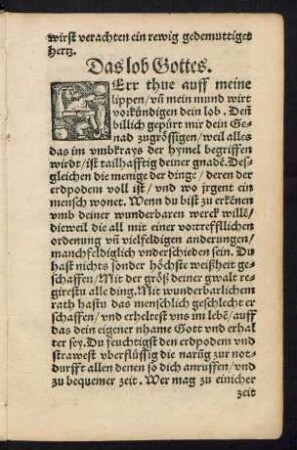 wirst verachten ein rewig gedemuttiget
hertz.
Das lob Gottes.
HErr thue auff meine
lippen/ vñ mein mund wirt
vorkündigen dein lob. Deñ
billich gepürt mir dein Ge-
nad zugrössigen/ weil alles
das im vmbkrays der hymel begriffen
wirdt/ ist tailhafftig deiner gnadē. Des-
gleichen die menige der dinge/ deren der
erdpodem voll ist/ vnd wo jrgent ein
mensch wonet. Wenn du bist zu erkēnen
vmb deiner wunderbaren werck willē/
dieweil die all mit einer vortrefflichen
ordenung vñ vielfeldigen anderungen/
manchfeldiglich vnderschieden sein. Du
hast nichts sonder höchste weißheit ge-
schaffen/ Mit der größ deiner gwalt re-
girestu alle ding. Mit wunderbarlichem
rath hastu das menschlich geschlecht er
schaffen/ vnd erheltest vns im lebē/ auff
das dein eigener nhame Gott vnd erhal
ter sey. Du feuchtigst den erdpodem vnd
strawest vberflüssig die narūg zur not-
durfft allen denen so dich anruffen/ vnd
zu bequemer zeit. Wer mag zu einicher
zeit